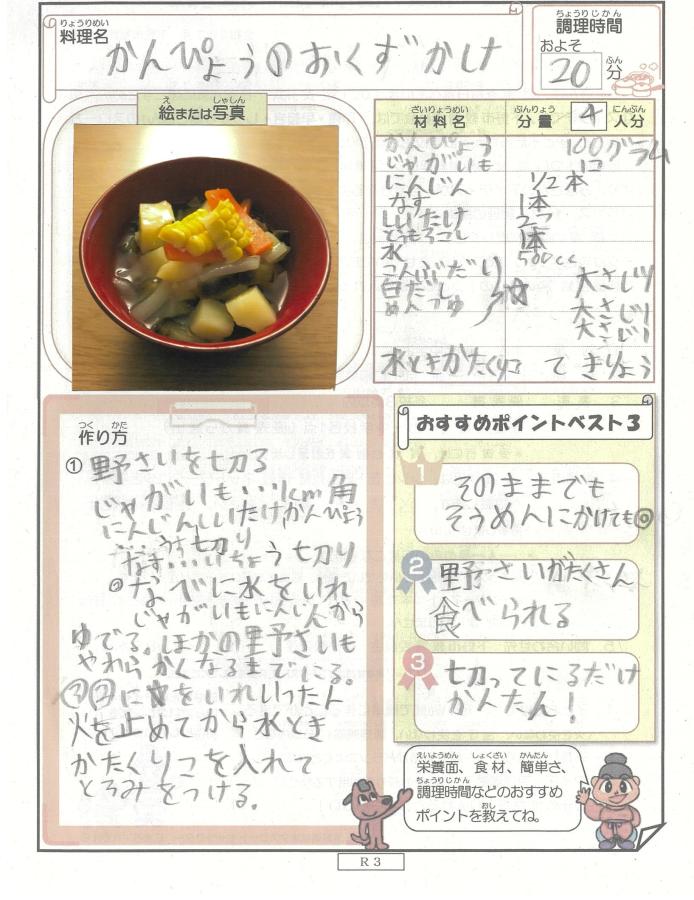 りょうりめい
料理名
かんぴょうのおくずかけ
ちょうりじかん
調理時間
およそ
20 ふん
分
え しゃしん
絵または写真
ざいりょうめい ぶんりょう にんぶん
材料名 分量 4 人分
かんぴょう 100グラム
じゃがいも 1コ
にんじん 1/2本
なす 1本
しいたけ 2つ
とうもろこし 1本
水 500cc
こんぶだし ☆ 大さじ1
白だし 大さじ1
めんつゆ 大さじ1
水ときかたくりこ てきりょう
つく かた
作り方
① 野さいを切る
じゃがいも…1cm角
にんじんしいたけ,かんぴょう
…うす切り
なす…いちょう切り
② なべに水をいれ
じゃがいもにんじんから
ゆでる。ほかの野さいも
やわらかくなるまでにる。
③②に☆をいれいったん
火を止めてから水とき
かたくりこを入れて
とろみをつける。
おすすめポイントベスト3
1
そのままでも
そうめんにかけても◎
2
野さいがたくさん
食べられる
3
切ってにるだけ
かんたん!
えいようめん しょくざい かんたん
栄養面、食材、簡単さ、
ちょうりじかん
調理時間などのおすすめ
おし
ポイントを教えてね。
R3